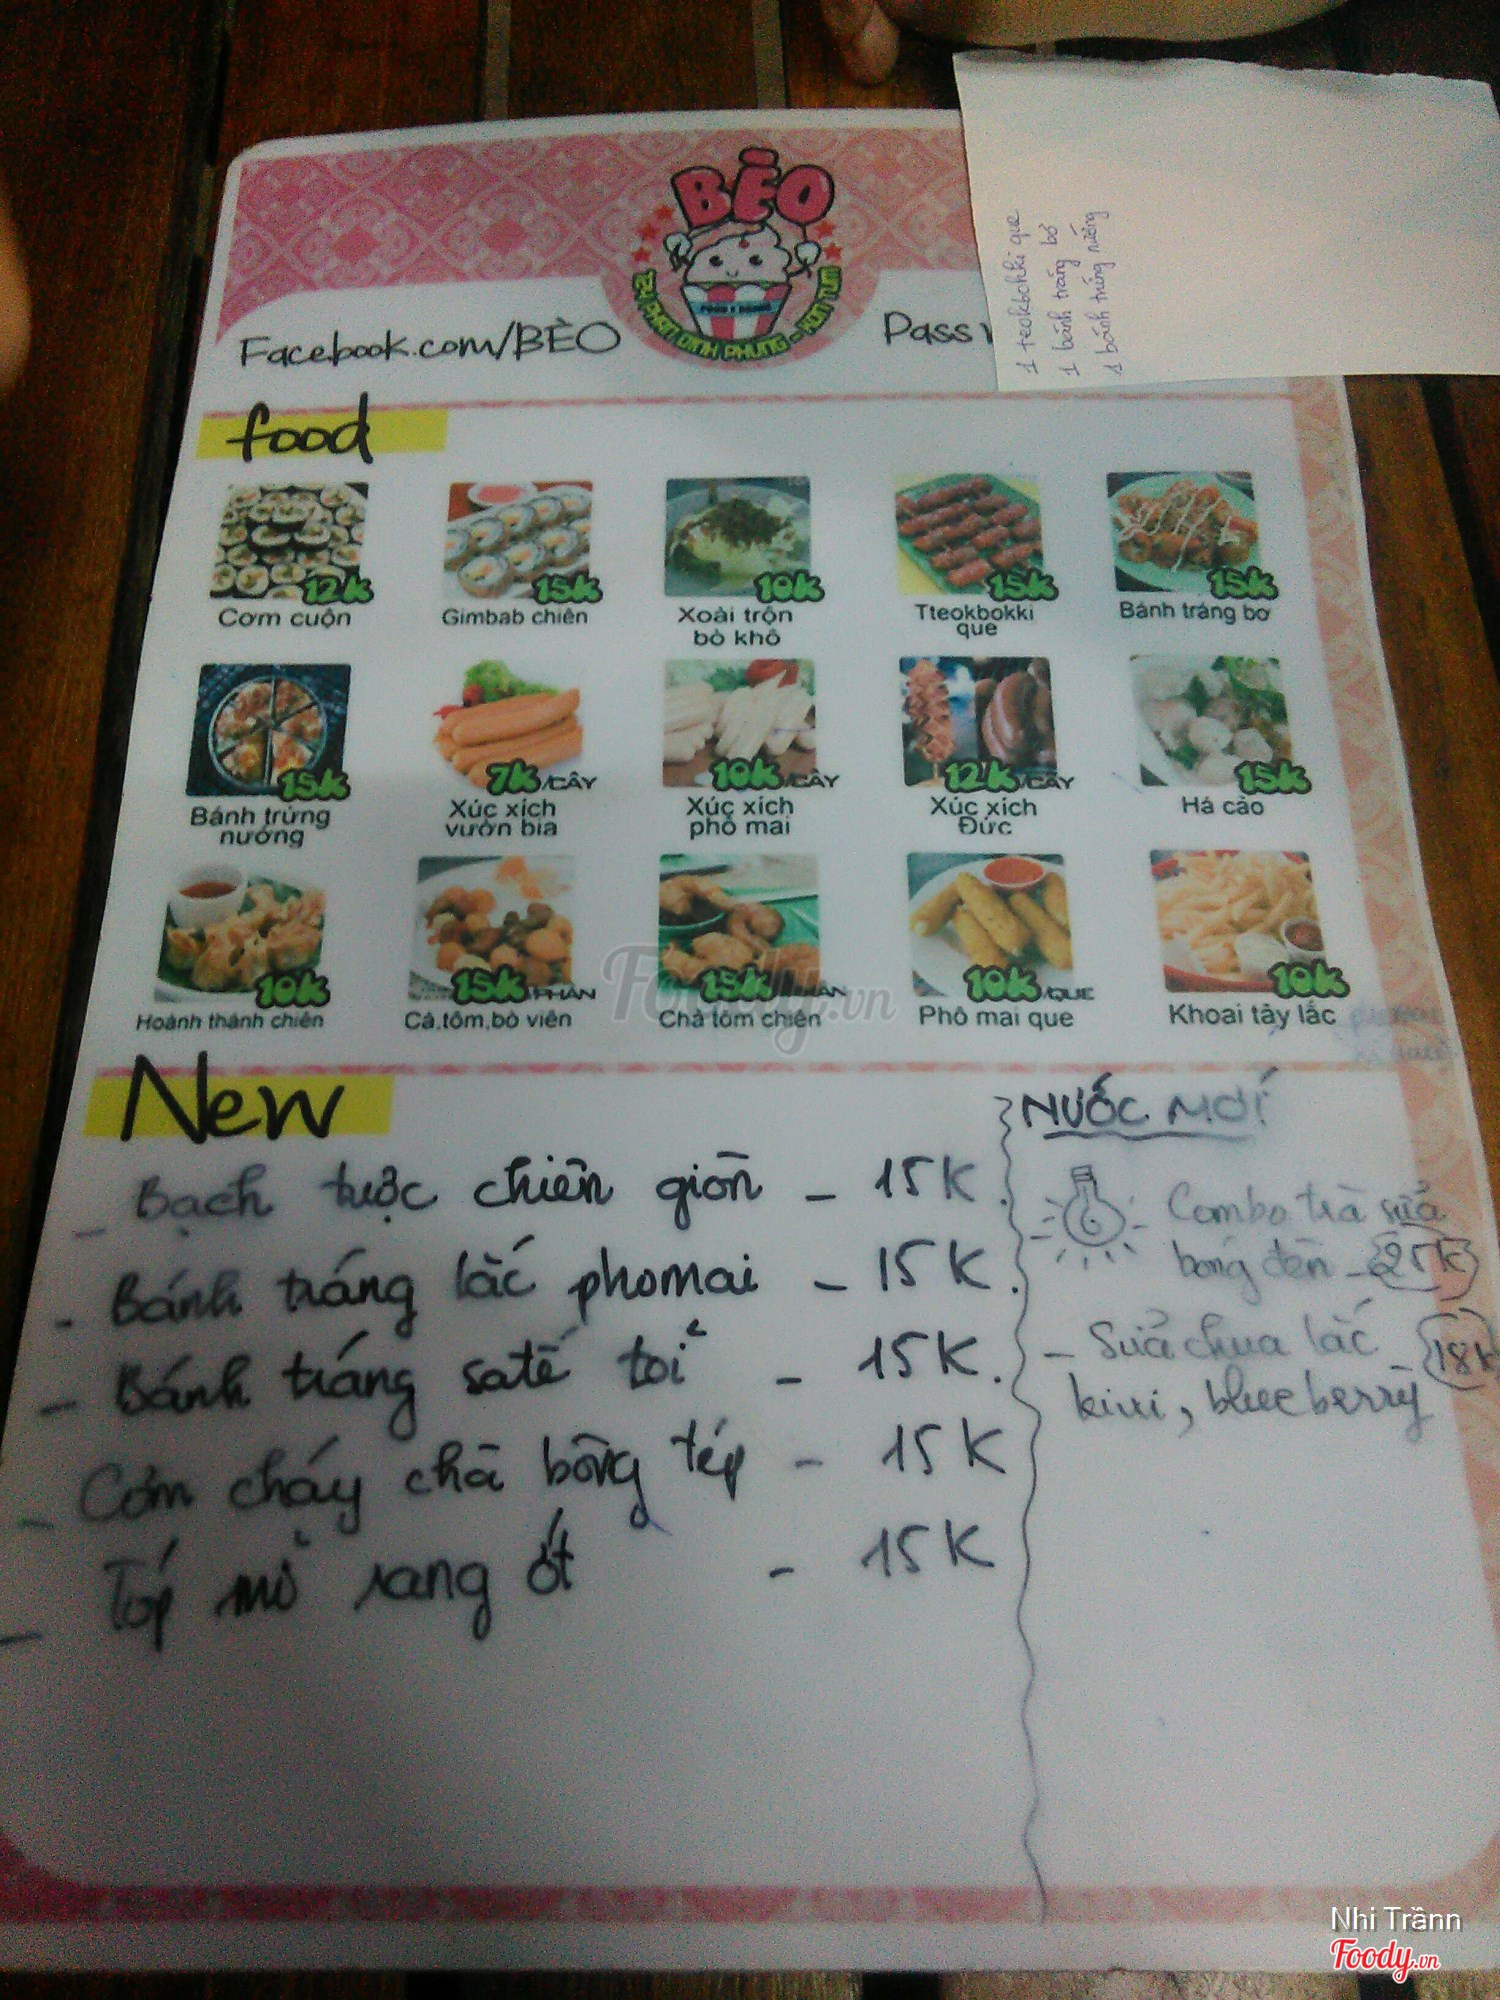 BÈO
FOOD & DRINKS
124 PHAN ĐÌNH PHÙNG - KON TUM
Facebook.com/BÈO
Pass
1 teokbohki que
1 bánh tráng bơ
1 bánh tráng nướng
food
12k
15k
10k
15k
15k
Cơm cuộn
Gimbab chiên
Xoài trộn
bò khô
Tteokbokki
que
Bánh tráng bơ
15k
7k/CÂY
10k/CÂY
12k/CÂY
15k
Bánh trứng
nướng
Xúc xích
vườn bia
Xúc xích
phô mai
Xúc xích
Đức
Há cảo
10k
15k/PHẦN
15k
10k/QUE
10k
Hoành thánh chiên
Cá,tôm,bò viên
Chả tôm chiên
Phô mai que
Khoai tây lắc
Foody.vn
New
- Bạch tuộc chiên giòn - 15K.
- Bánh tráng lắc phomai - 15K.
- Bánh tráng satế tỏi - 15K.
- Cơm cháy chà bông tép - 15K
- Tóp mỡ rang ớt - 15K
NƯỚC MỚI
Combo trà sữa
bóng đèn - 25K
- Sữa chua lắc - 18K
kiwi, blueberry
Nhi Trầnn
Foody.vn